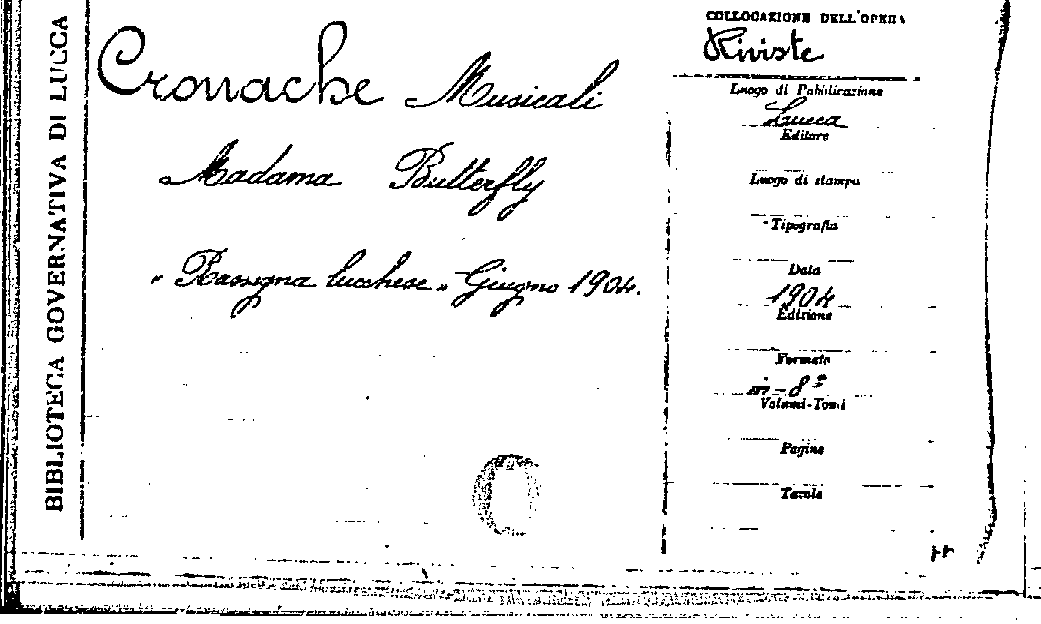 BIBLIOTECA GOVERNATIVA DI LUCCA
Cronache Musicali
Madama Butterfly
"Rassegna lucchese" - Giugno 1904.
COLLOCAZIONE DELL'OPERA
Riviste
Luogo di Pubblicazione
Lucca
Editore
Luogo di stampa
Tipografia
Data
1904
Edizione
Formato
in-8º
Volumi-Tomi
Pagine
Tavole